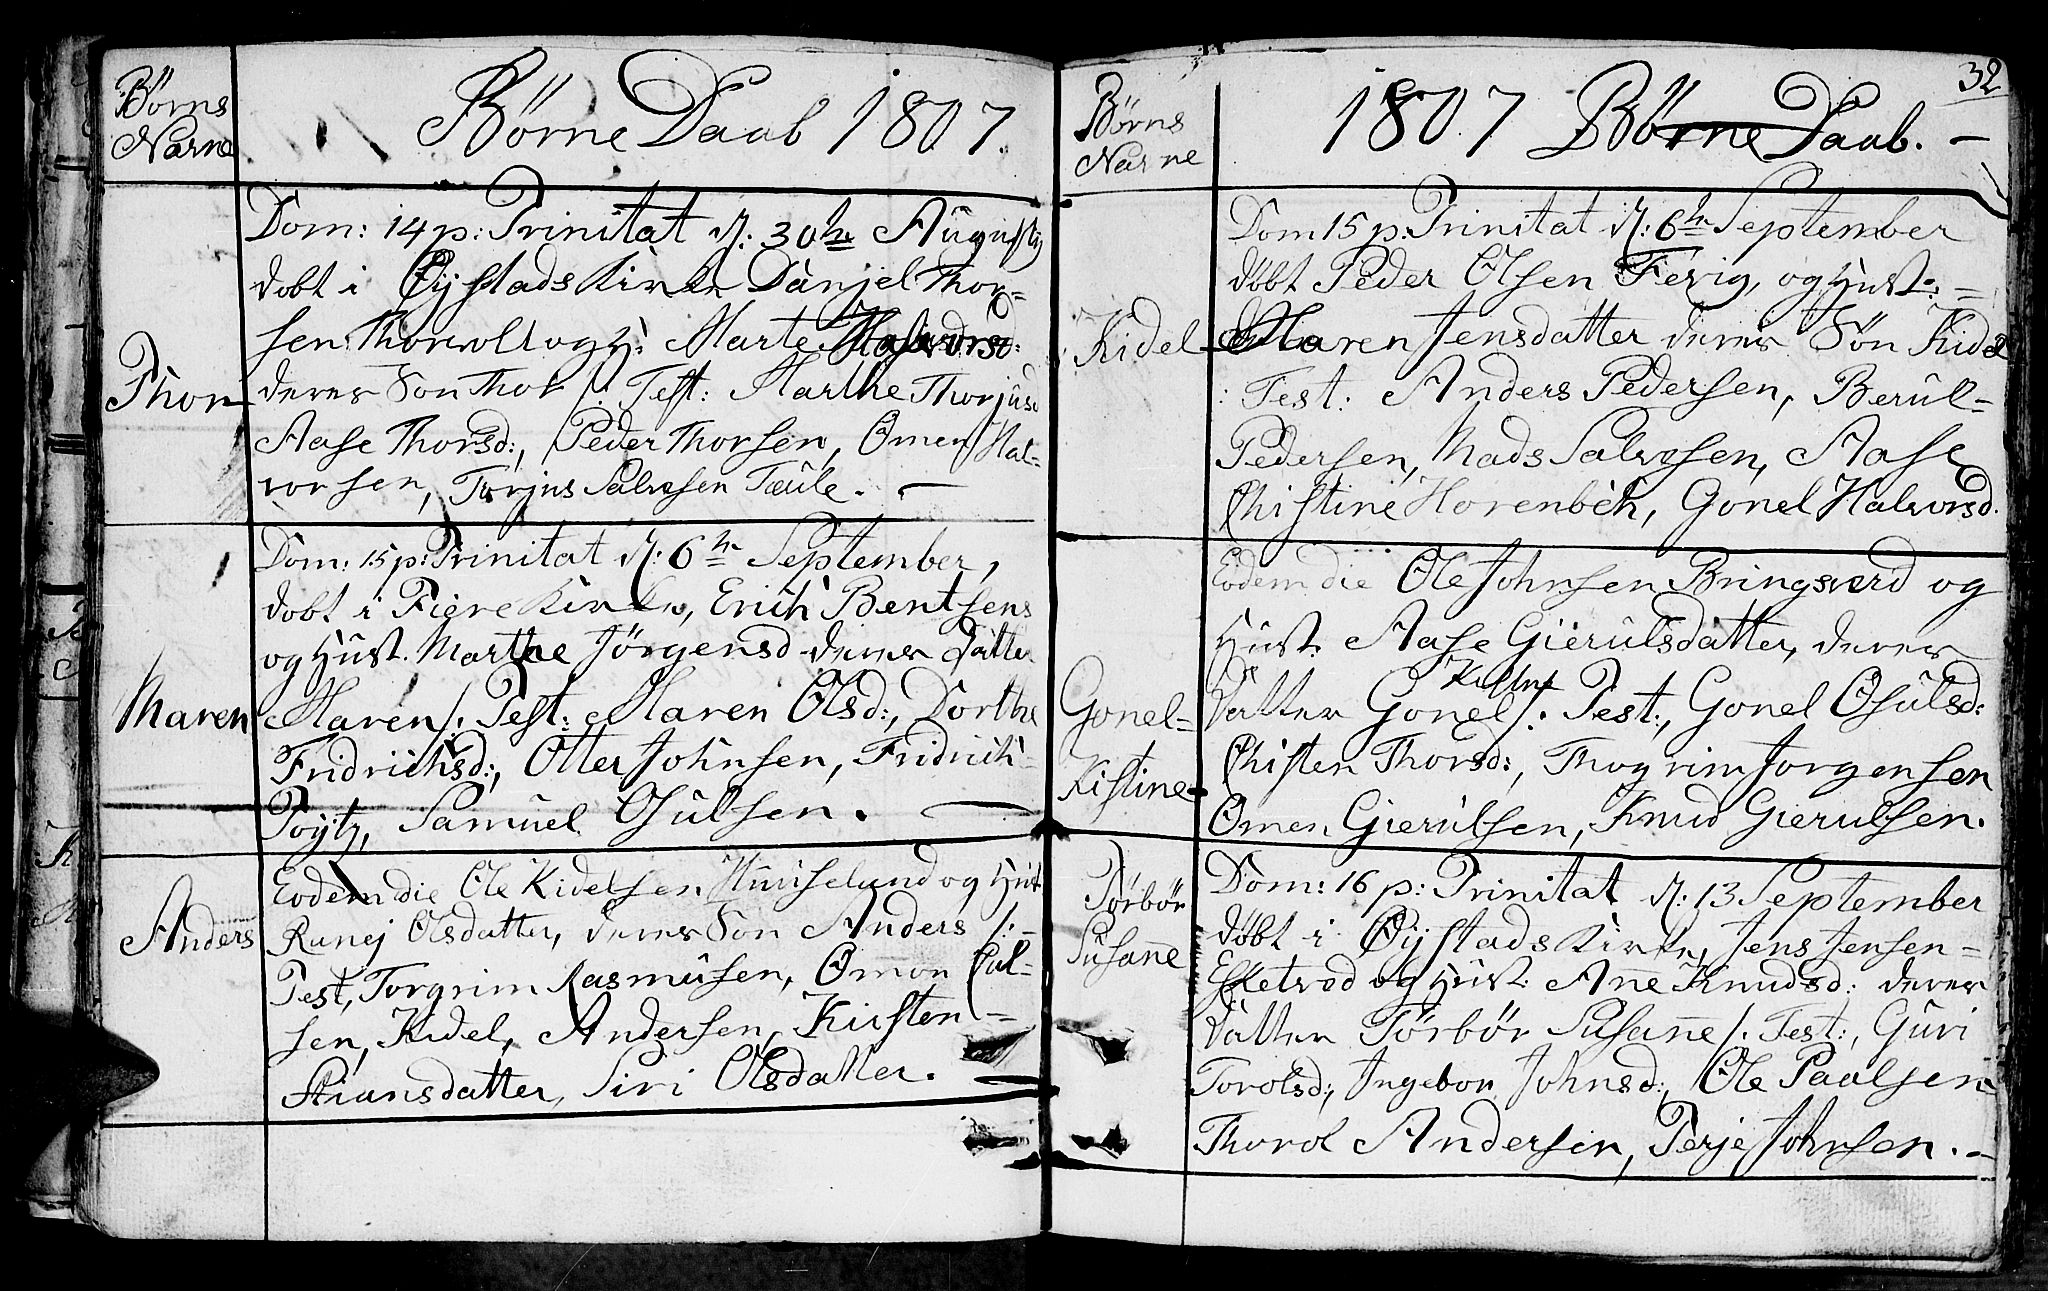 Børns
Navne
Børne Daab 1807.
Thor
Dom: 14 p: Trinitat d: 30te Augusty
døbt i Øystads Kirke Danjel Thor-
sen Thorvolt og H: Marte Halvorsd:
deres Søn Thor /. Test: Marthe Thorjusd
Aase Thorsd:, Peder Thorsen, Omen Hal-
vorsen, Torjus Salvesen Tæule. -
Maren
Dom: 15 p: Trinitat d: 6te September,
døbt i Fiere Kirke, Erich Bentsens
og Hust. Marthe Jørgensd deres datter
Maren /. Test: Maren Olsd:, Dorthe
Fridrichsd:, Otter Johnsen, Fridrich
Töytz, Samuel Osulsen.
Anders
Eodem die Ole Kidelsen Huuselund og Hust
Ranej Olsdatter, deres Søn Anders /:-
Test, Torgrim Rasmusen, Omon Pal-
sen, Kidel, Andersen, Kirsten
Stiansdatter, Siri Olsdatter.
32
Børns
Navne
1807 Børne Daab. -
Kidel
Dom 15 p: Trinitat d: 6te September
døbt Peder Olsen Fevig, og Hust: =
Maren Jensdatter deres Søn Kidel
: Test: Anders Pedersen, Berul-
Pedersen, Mads Salvesen, Aase
Christine Horenbech, Gonel Halvorsd.
Gonel-
Kistine
Eodem die Ole Johnsen Bringsverd og
Hust. Aase Gierulsdatter, deres
Kistine
datter Gonel /. Test:, Gonel Osulsd:
Christen Thorsd:, Thogrim Jorgensen
Omen Gierulsen, Knud Gierulsen.
Tørbør
Susanne
Dom: 16 p: Trinitat d: 13 September
døbt i Øystads Kirke, Jens Jensen-
Effetved og Hust: Anne Knudsd: deres
datter Tørbør Susanne /. Test:, Guri
Torolsd:, Ingebor Johnsd:, Ole Paalsen
Thorol Andersen, Terje Johnsen. -